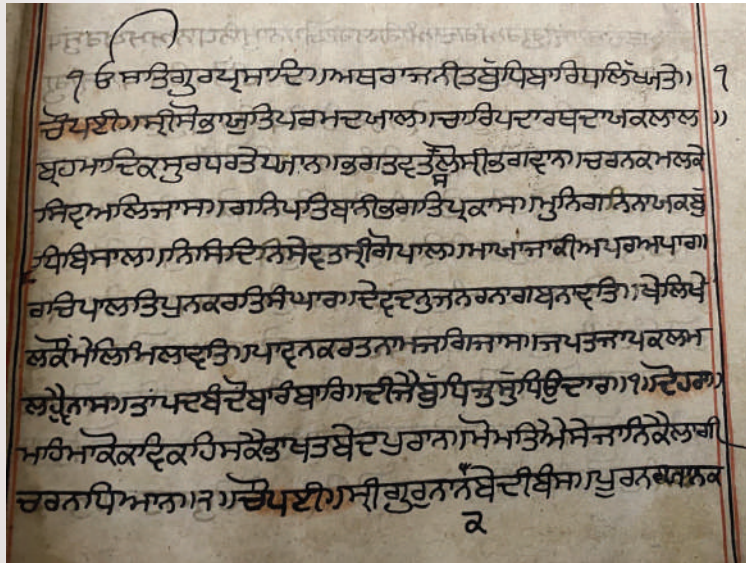 ੧ ੴ ਸਤਿਗੁਰਪ੍ਰਸਾਦਿ।।ਅਥਰਾਜਨੀਤਬੁੱਧਿਬਾਰਿਧਲਿੱਖ੍ਯਤੇ।। ੧
ਚੌਪਈ।।ਸ੍ਰੀਸੋਭਾਯੁਤਿਪਰਮਦਯਾਲ।ਚਾਰਿਪਦਾਰਥਦਾਯਕਲਾਲ ।।
ਬ੍ਰਹਮਾਦਿਕਸੁਰਧਰਤੇਧ੍ਯਾਨ।ਭਗਤਵਤੱਲਸ੍ਰੀਭਗਵਾਨ।ਚਰਨਕਮਲਕੇ
ਸਿਵਾਅਲਿਜਾਸ।ਗਨਿਪਤਿਬਾਨੀਭਗਤਿਪ੍ਰਕਾਸ।ਮੁਨਿਗਨਿਨਾਯਕਬੁੱ
ਧਿਬਿਸਾਲ।ਨਿਸਿਦਿਨਿਸੇਵਤਸ੍ਰੀਗੋਪਾਲ।ਮਾਯਾਜਾਕੀਅਪਰਅਪਾਰ।
ਰਚਿਪਾਲਤਿਪੁਨਕਰਤਿਸੰਘਾਰ।ਦੇਵਦਨੁਜਨਰਨਾਗਬਨਾਵਤਿ।ਖੇਲਿਖੇ
ਲਕੌਮੇਲਿਮਿਲਾਵਤਿ।ਪਾਵਨਕਰਤਨਾਮਜਗਿਜਾਸ।ਜਪਤਜਾਪਕਲਮ
ਲਹ੍ਵੈਨਾਸ।ਤਾਂਪਦਬੰਦੋਬਾਰੰਬਾਰਿ।ਦੀਜੈਬੁੱਧਿਜੁਸੁੱਧਿਉਦਾਰ।।੧।।ਦੋਹਰਾ।
ਮਹਿਮਾਕੋਕਵਿਕਹਿਸਕੈਭਾਖਤਬੇਦਪੁਰਾਨ।ਮੋਮਤਿਐਸੇਜਾਨਿਕੈਲਾਗੀ
ਚਰਨਧਿਆਨ।੨।ਚੌਪਈ।।ਸ੍ਰੀਗੁਰੁਨਾਨਁਬੇਦੀਬੰਸ।ਪੂਰਨ
ਕ